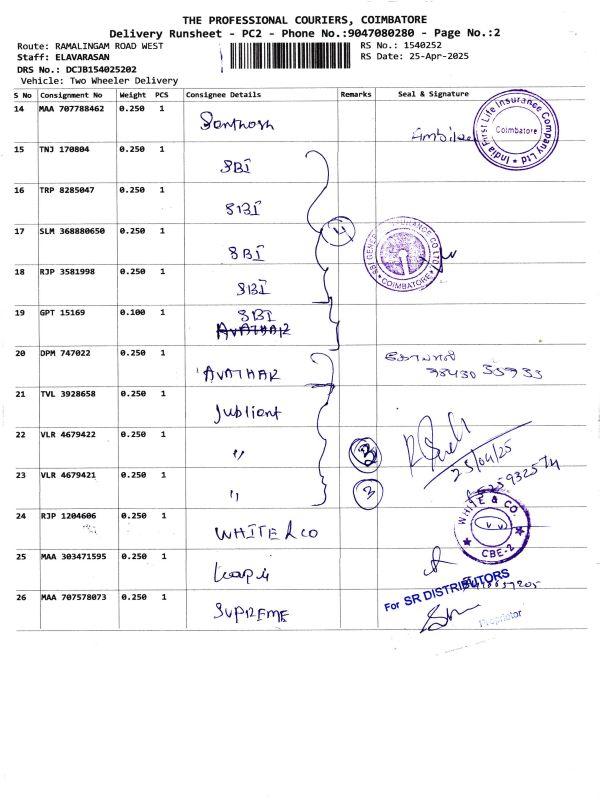 THE PROFESSIONAL COURIERS, COIMBATORE
Delivery Runsheet - PC2 - Phone No.:9047080280 - Page No.:2
Route: RAMALINGAM ROAD WEST
RS No.: 1540252
Staff: ELAVARASAN
RS Date: 25-Apr-2025
DRS No.: DCJB154025202
Vehicle: Two Wheeler Delivery
S No Consignment No Weight PCS Consignee Details Remarks Seal & Signature
14 MAA 707788462 0.250 1 Santhosh
India First Life Insurance Company Ltd
Coimbatore
15 TNJ 170804 0.250 1 SBI
16 TRP 8285047 0.250 1 SBI
17 SLM 368880650 0.250 1 SBI
COIMBATORE
18 RJP 3581998 0.250 1 SBI
19 GPT 15169 0.100 1 SBI
AVATHAR
20 DPM 747022 0.250 1 AVATHAR
கோபால்
21 TVL 3928658 0.250 1 Jublient
22 VLR 4679422 0.250 1 〃 3
25/04/25
23 VLR 4679421 0.250 1 〃 3
24 RJP 1204606 0.250 1 WHITE & CO
WHITE & CO.
CBE-2
25 MAA 303471595 0.250 1
26 MAA 707578073 0.250 1 SUPREME
For SR DISTRIBUTORS
Proprietor